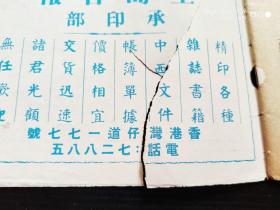 承印部
精印各種
雜誌書籍
中西文件
帳簿單據
價格相宜
交貨迅速
諸君光顧
無任歡迎
香港灣仔道一七七號
電話：七二八八五